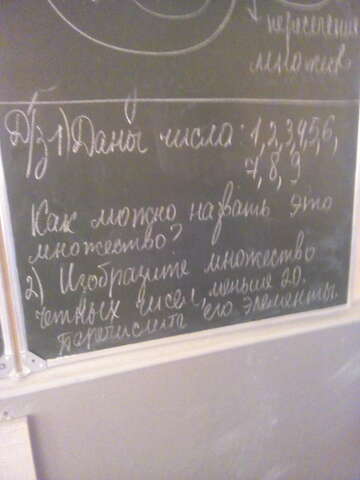 пересечения
множеств
Д/з 1) Даны числа: 1,2,3,4,5,6,
7, 8, 9
Как можно назвать это
множество?
2) Изобразите множество
четных чисел, меньше 20.
Перечислите его элементы.